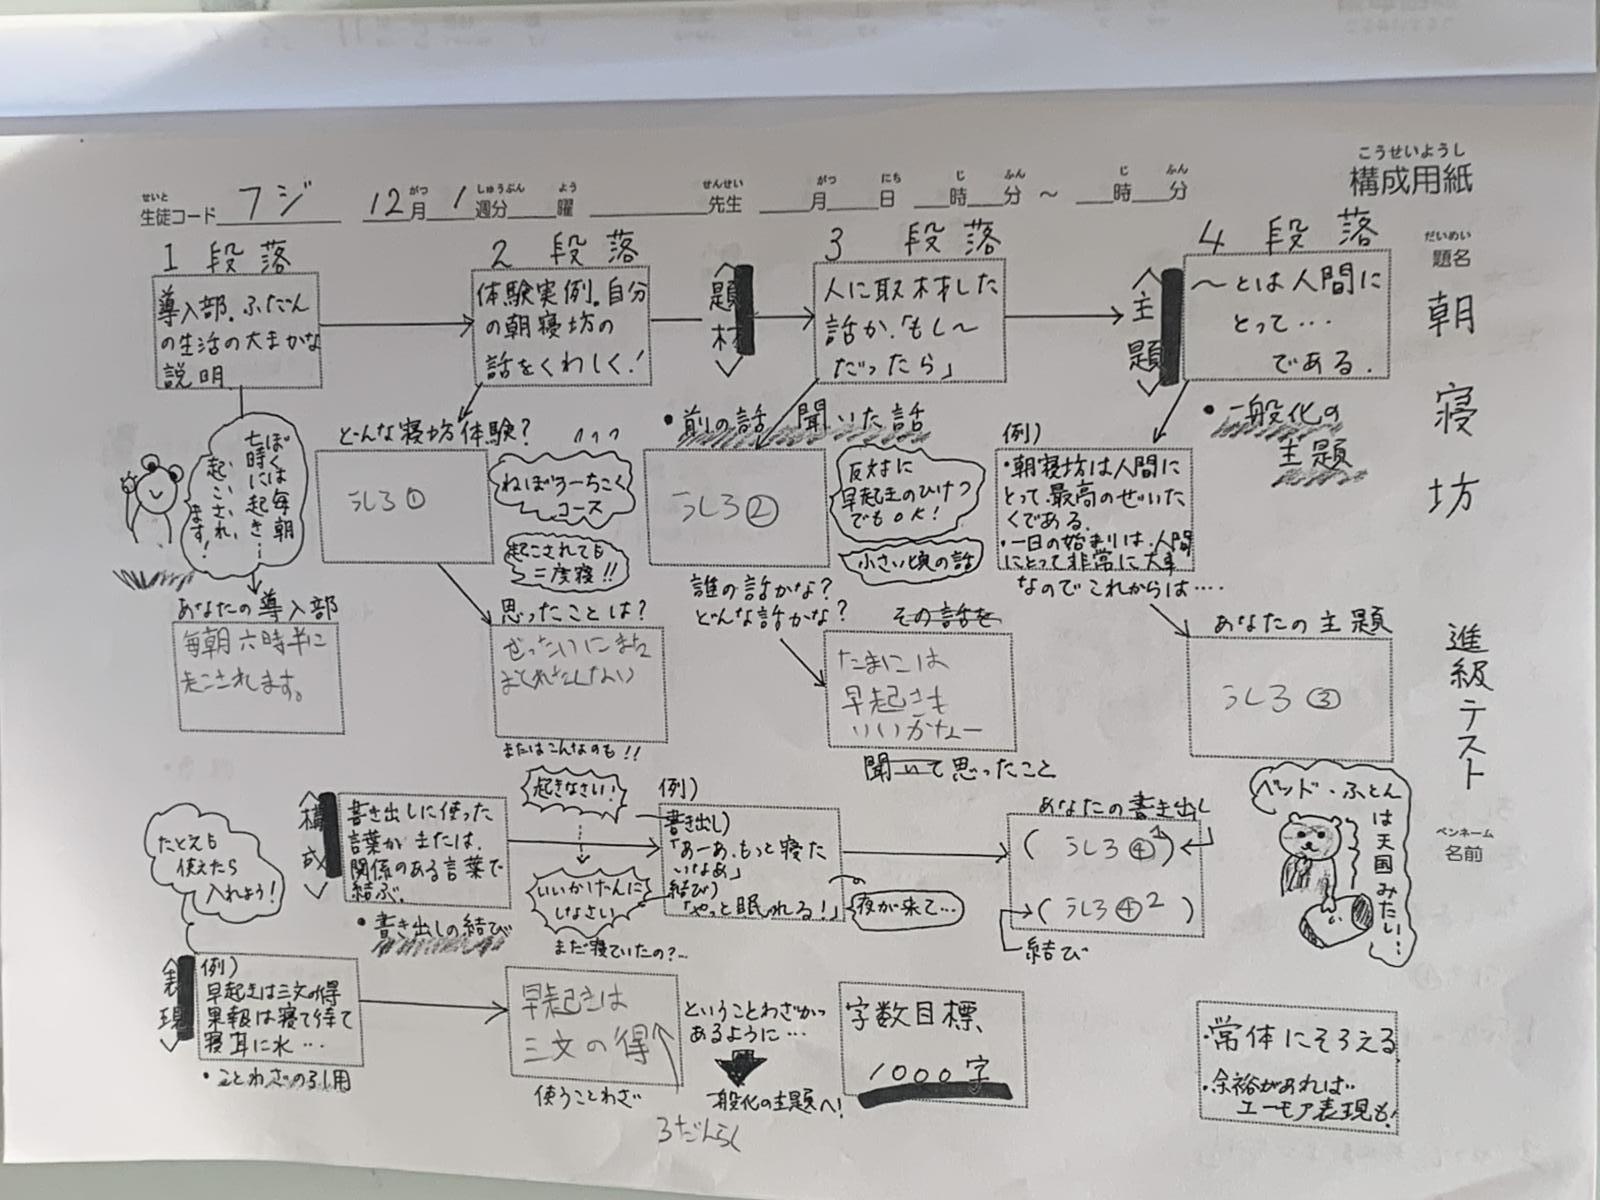 こうせいようし
構成用紙
せいと がつ しゅうぶん よう せんせい がつ にち じ ふん じ ふん
生徒コード フジ 12月 1週分 曜 先生 月 日 時 分 ～ 時 分
だいめい
題名
朝寝坊
進級テスト
ペンネーム
名前
1段落
導入部、ふだん
の生活の大まかな
説明
2段落
体験実例。自分
の朝寝坊の
話をくわしく!
題材
3段落
人に取材した
話か、「もし～
だったら」
主題
4段落
～とは人間に
とって…
である。
ぼくは毎朝
七時に起き…
起こされ、
ます!
どんな寝坊体験?
うしろ①
ねぼうーちこく
コース
起こされても
二度寝!!
・前の話 聞いた話
うしろ②
反対に
早起きのひけつ
でもOK!
小さい頃の話
例)
・朝寝坊は人間に
とって、最高のぜいた
くである。
・一日の始まりは、人間
にとって非常に大事
なのでこれからは….
・一般化の
主題
あなたの導入部
毎朝六時半に
起こされます。
思ったことは?
またはこんなのも!!
誰の話かな?
どんな話かな?
その話を
たまには
早起きも
いいかなー
聞いて思ったこと
あなたの主題
うしろ③
たとえも
使えたら
入れよう!
構成
書き出しに使った
言葉が または、
関係のある言葉で
結ぶ。
・書き出しの結び
起きなさい!
いいかげんに
しなさい
まだ寝ていたの?…
例)
書き出し)
「あーあ、もっと寝た
いなあ」
結び)
「やっと眠れる!」
夜が来て…
あなたの書き出し
(うしろ④)
(うしろ④2)
結び
ベッド・ふとん
は天国みたい…
表現
例)
早起きは三文の得
果報は寝て待て
寝耳に水…
・ことわざの引用
早起きは
三文の得
使うことわざ
ということわざがつ
あるように…
一般化の主題へ!
3だんらく
字数目標、
1000字
・常体にそろえる
・余裕があれば
ユーモア表現も!